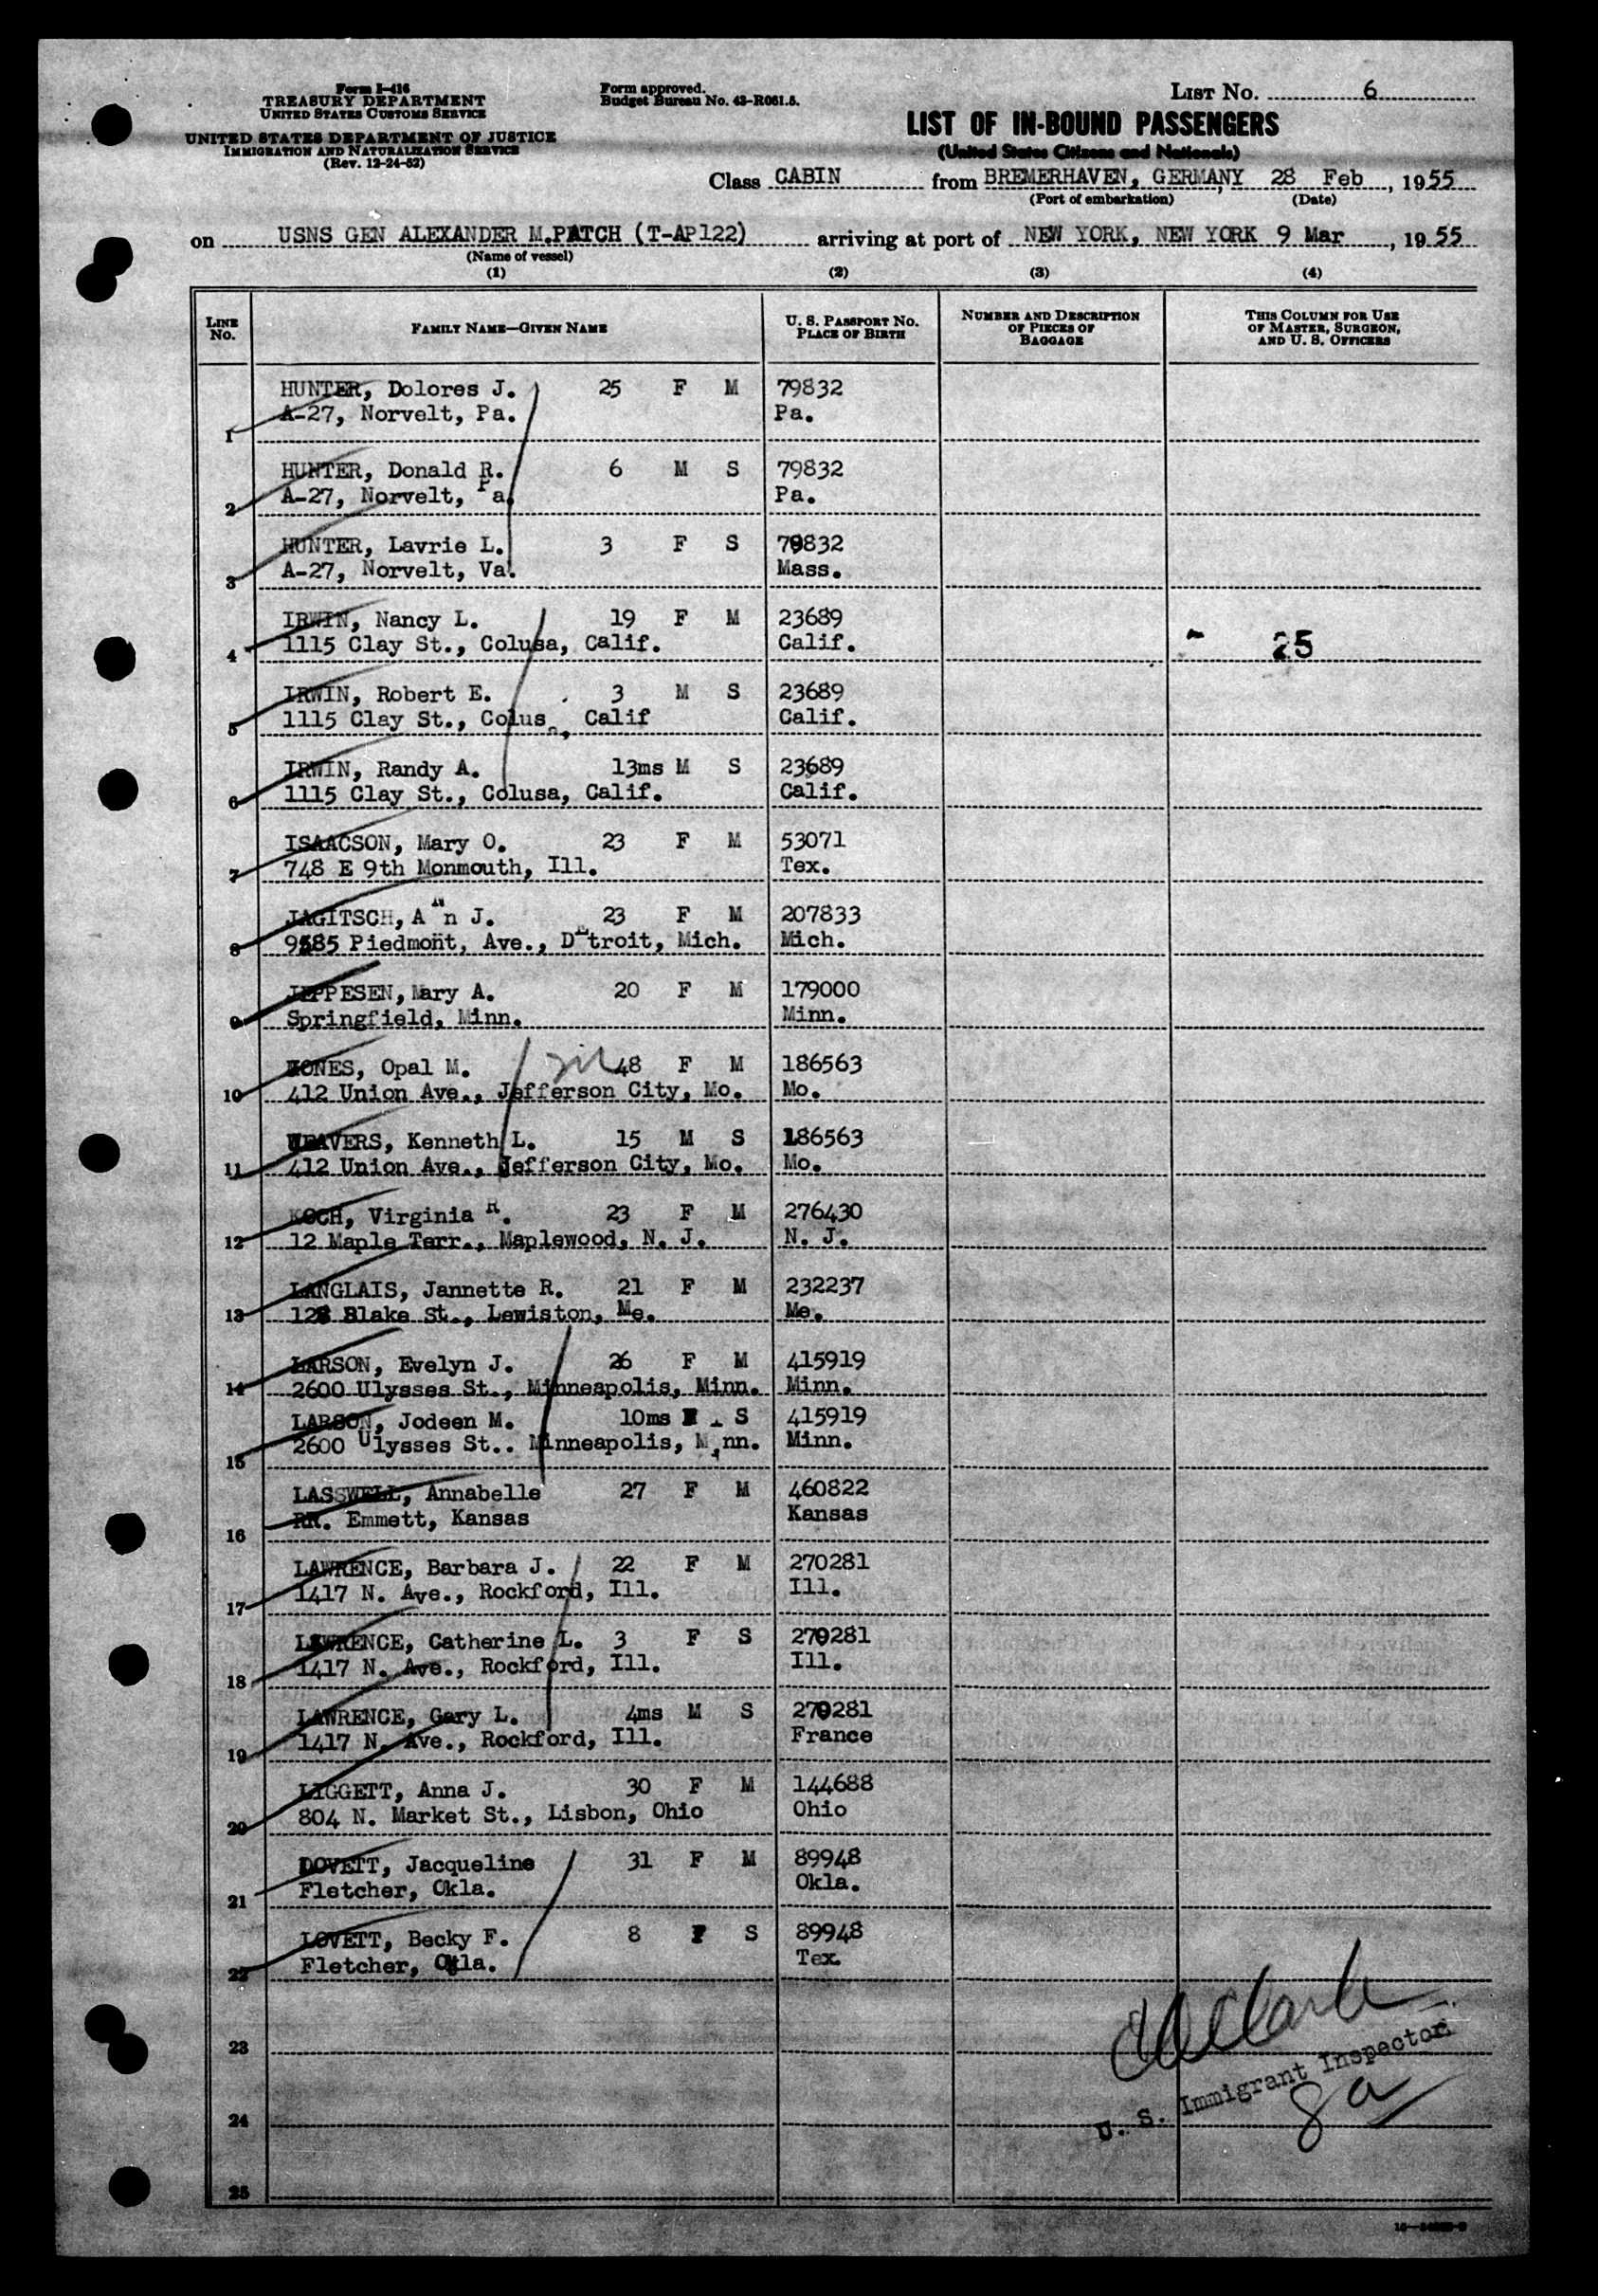 Form I-416
TREASURY DEPARTMENT
UNITED STATES CUSTOMS SERVICE
UNITED STATES DEPARTMENT OF JUSTICE
IMMIGRATION AND NATURALIZATION SERVICE
(Rev. 12-24-52)
Form approved.
Budget Bureau No. 43-R061.5.
LIST No. 6
LIST OF IN-BOUND PASSENGERS
(United States Citizens and Nationals)
Class CABIN from BREMERHAVEN, GERMANY 28 Feb, 1955
(Port of embarkation) (Date)
on USNS GEN ALEXANDER M.PATCH (T-AP122) arriving at port of NEW YORK, NEW YORK 9 Mar, 1955
(Name of vessel)
(1) (2) (3) (4)
LINE No. FAMILY NAME—GIVEN NAME U. S. PASSPORT No. PLACE OF BIRTH NUMBER AND DESCRIPTION OF PIECES OF BAGGAGE THIS COLUMN FOR USE OF MASTER, SURGEON, AND U. S. OFFICERS
HUNTER, Dolores J. 25 F M 79832
1 A-27, Norvelt, Pa. Pa.
HUNTER, Donald R. 6 M S 79832
2 A-27, Norvelt, Pa. Pa.
HUNTER, Lavrie L. 3 F S 79832
3 A-27, Norvelt, Va. Mass.
IRWIN, Nancy L. 19 F M 23689
4 1115 Clay St., Colusa, Calif. Calif. - 25
IRWIN, Robert E. 3 M S 23689
5 1115 Clay St., Colusa, Calif Calif.
IRWIN, Randy A. 13ms M S 23689
6 1115 Clay St., Colusa, Calif. Calif.
ISAACSON, Mary O. 23 F M 53071
7 748 E 9th Monmouth, Ill. Tex.
JAGITSCH, Ann J. 23 F M 207833
8 9585 Piedmont, Ave., Detroit, Mich. Mich.
JEPPESEN, Mary A. 20 F M 179000
9 Springfield, Minn. Minn.
JONES, Opal M. 48 F M 186563
10 412 Union Ave., Jefferson City, Mo. Mo.
WEAVERS, Kenneth L. 15 M S 186563
11 412 Union Ave., Jefferson City, Mo. Mo.
KOCH, Virginia R. 23 F M 276430
12 12 Maple Terr., Maplewood, N. J. N. J.
LANGLAIS, Jannette R. 21 F M 232237
13 128 Blake St., Lewiston, Me. Me.
LARSON, Evelyn J. 26 F M 415919
14 2600 Ulysses St., Minneapolis, Minn. Minn.
LARSON, Jodeen M. 10ms F S 415919
15 2600 Ulysses St.. Minneapolis, Minn. Minn.
LASSWELL, Annabelle 27 F M 460822
16 RR. Emmett, Kansas Kansas
LAWRENCE, Barbara J. 22 F M 270281
17 1417 N. Ave., Rockford, Ill. Ill.
LAWRENCE, Catherine L. 3 F S 270281
18 1417 N. Ave., Rockford, Ill. Ill.
LAWRENCE, Gary L. 4ms M S 270281
19 1417 N. Ave., Rockford, Ill. France
LIGGETT, Anna J. 30 F M 144688
20 804 N. Market St., Lisbon, Ohio Ohio
LOVETT, Jacqueline 31 F M 89948
21 Fletcher, Okla. Okla.
LOVETT, Becky F. 8 F S 89948
22 Fletcher, Okla. Tex.
23
24
25
U. S. Immigrant Inspector
8a